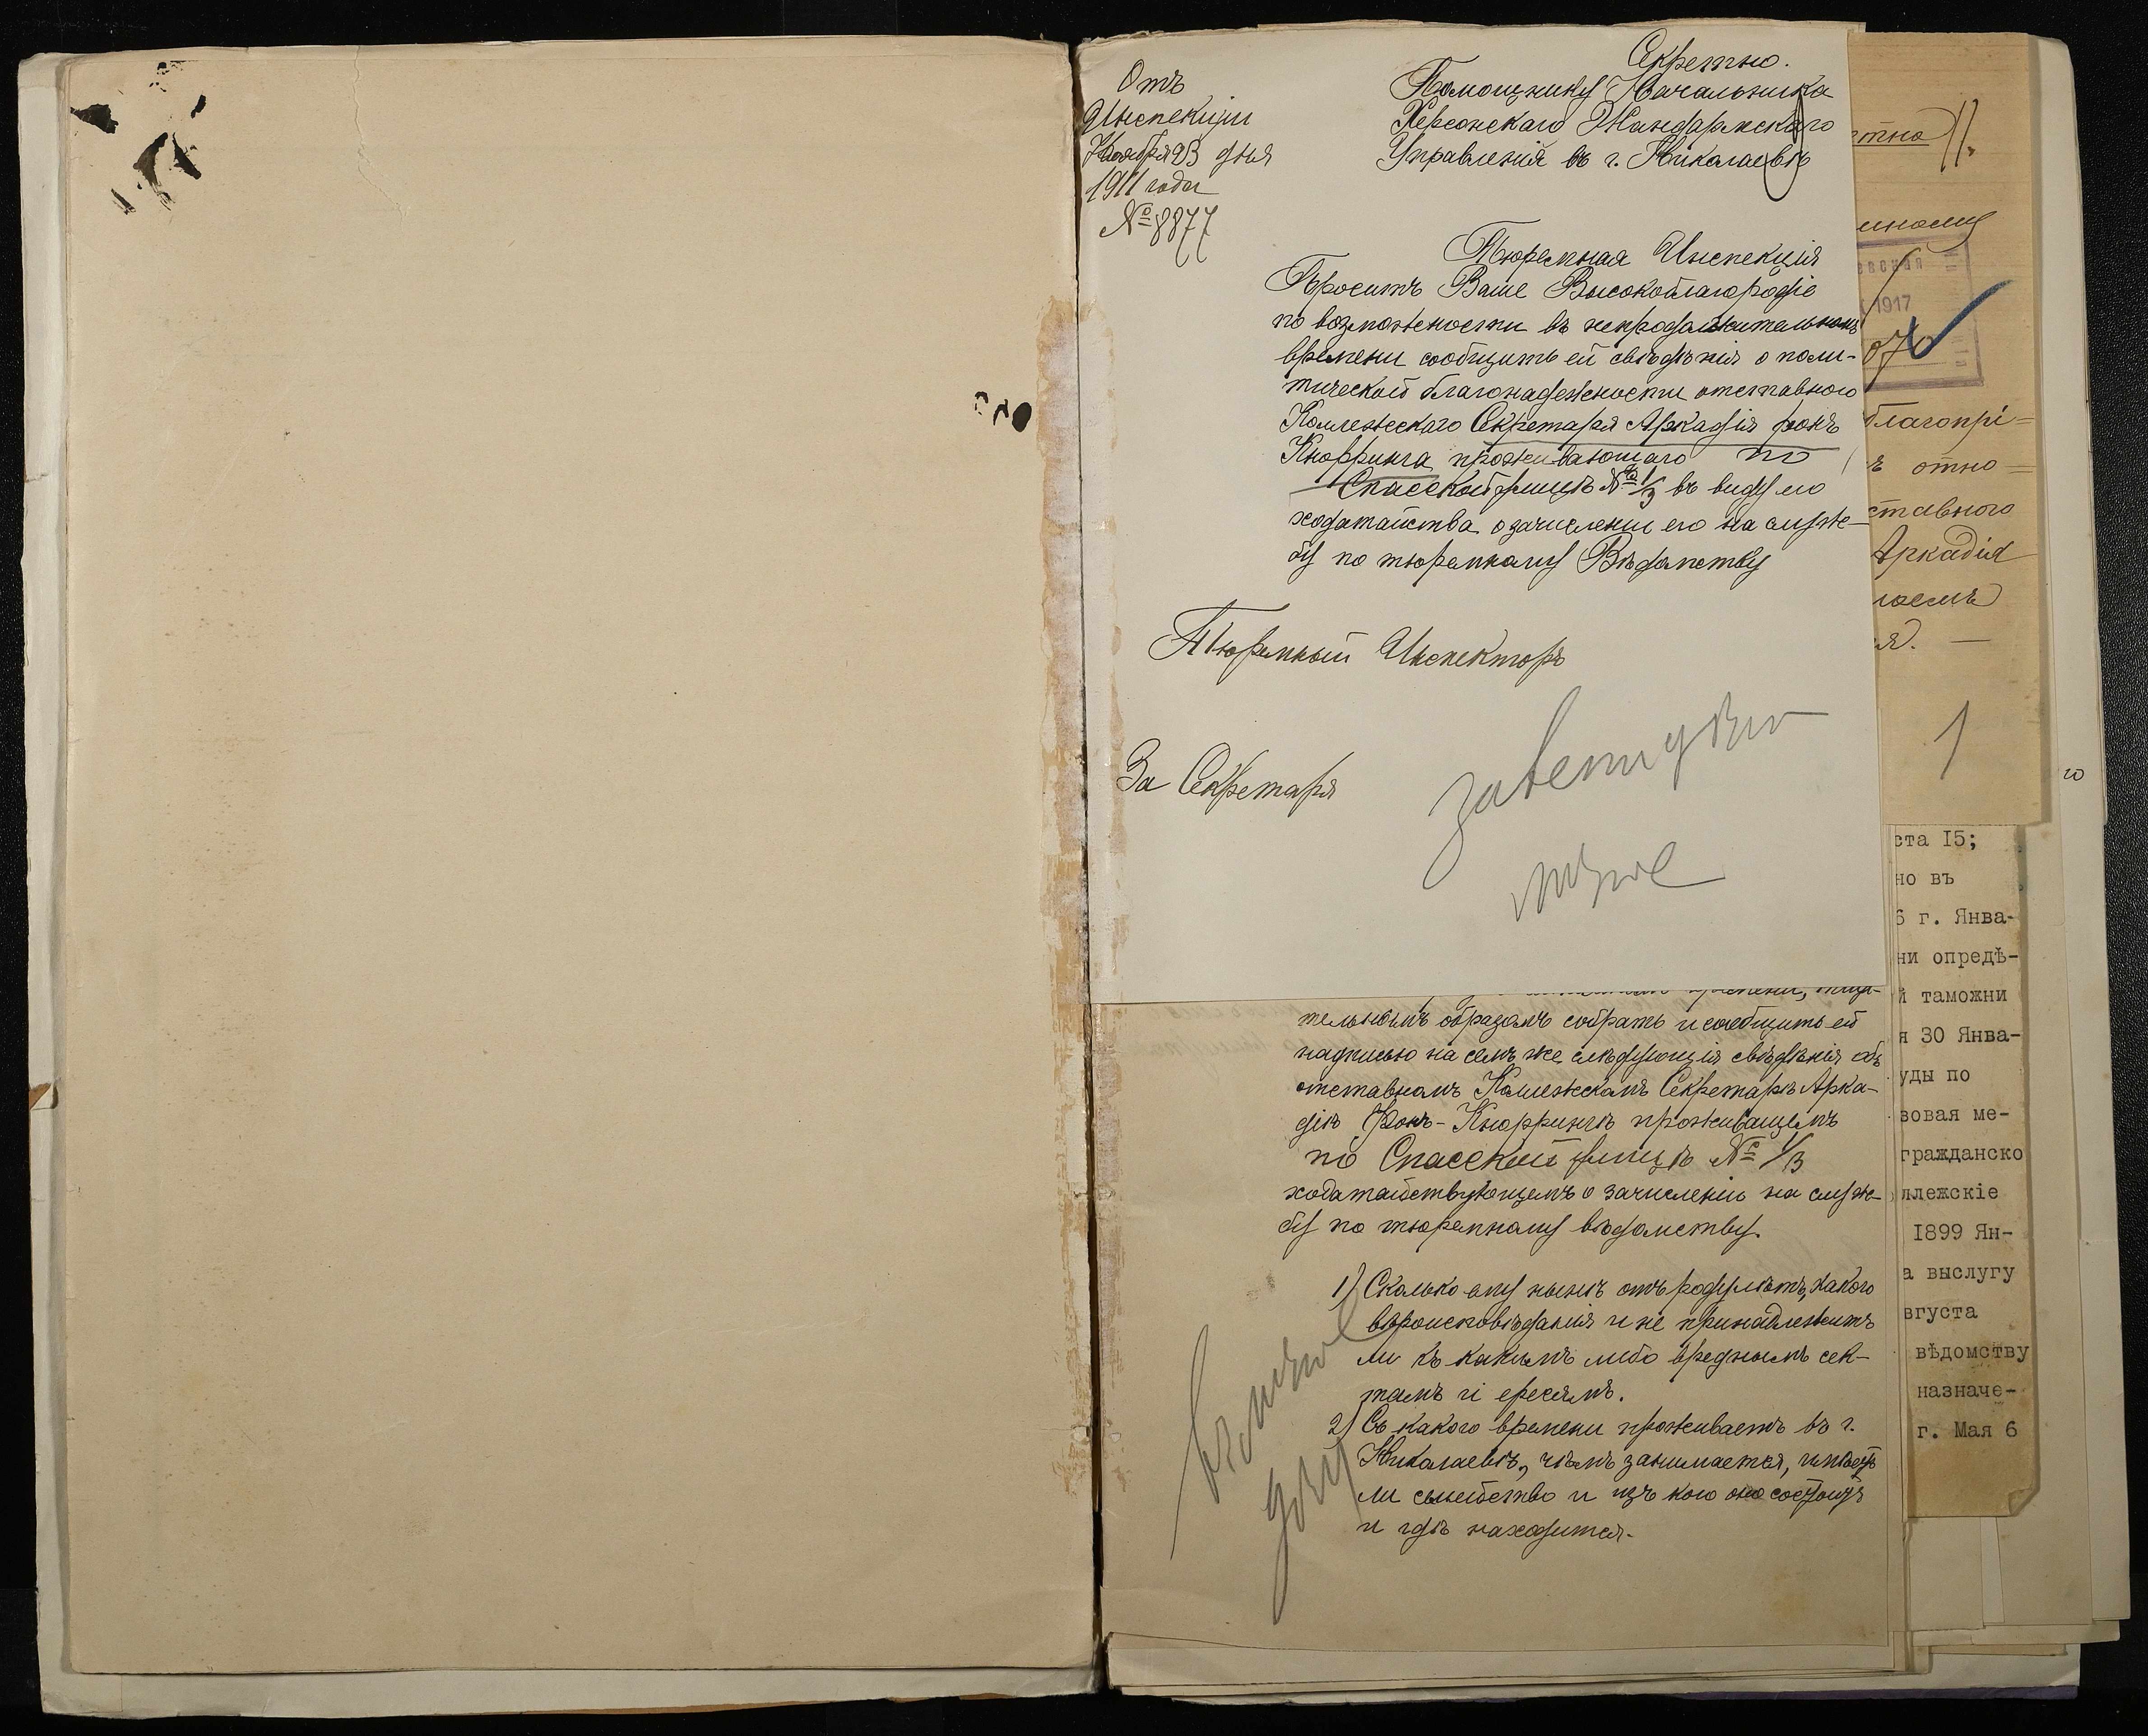 Секретно.
Отъ
Инспекціи
Ноября 23 дня
1911 года
№ 8877
Помощнику Начальника
Херсонскаго Жандармскаго
Управленія въ г. Николаевѣ
Тюремная Инспекція
Проситъ Ваше Высокоблагородіе
по возможности въ непродолжительномъ
времени сообщить ей свѣдѣнія о поли-
тической благонадежности отставного
Коллежскаго Секретаря Аркадія фонъ
Кнорринга проживающаго по
Спасской улицѣ № 1/3 въ виду его
ходатайства о зачисленіи его на служ-
бу по тюремному Вѣдомству
Тюремный Инспекторъ
За Секретаря
времени, тща-
тельнымъ образомъ собрать и сообщить ей
надписью на семъ же слѣдующія свѣдѣнія объ
отставномъ Коллежскомъ Секретарѣ Арка-
діѣ Фонъ-Кноррингѣ проживащемъ
по Спасской улицѣ № 1/3
ходатайствующемъ о зачисленіи на служ-
бу по тюремному вѣдомству.
1) Сколько ему нынѣ отъ роду лѣтъ, какого
вѣроисповѣданія и не принадлежитъ
ли къ какимъ либо вреднымъ сек-
тамъ и ересямъ.
2) Съ какого времени проживаетъ въ г.
Николаевѣ, чѣмъ занимается, имѣетъ
ли семейство и изъ кого оно состоитъ
и гдѣ находится.
тно
11.
1917
благопрі=
отно=
ставного
Аркадія
1
го
ста I5;
но въ
6 г. Янва-
ни опредѣ-
й таможни
я 30 Янва-
уды по
зовая ме-
гражданско
ллежскіе
I899 Ян-
а выслугу
вгуста
вѣдомству
назначе-
г. Мая 6